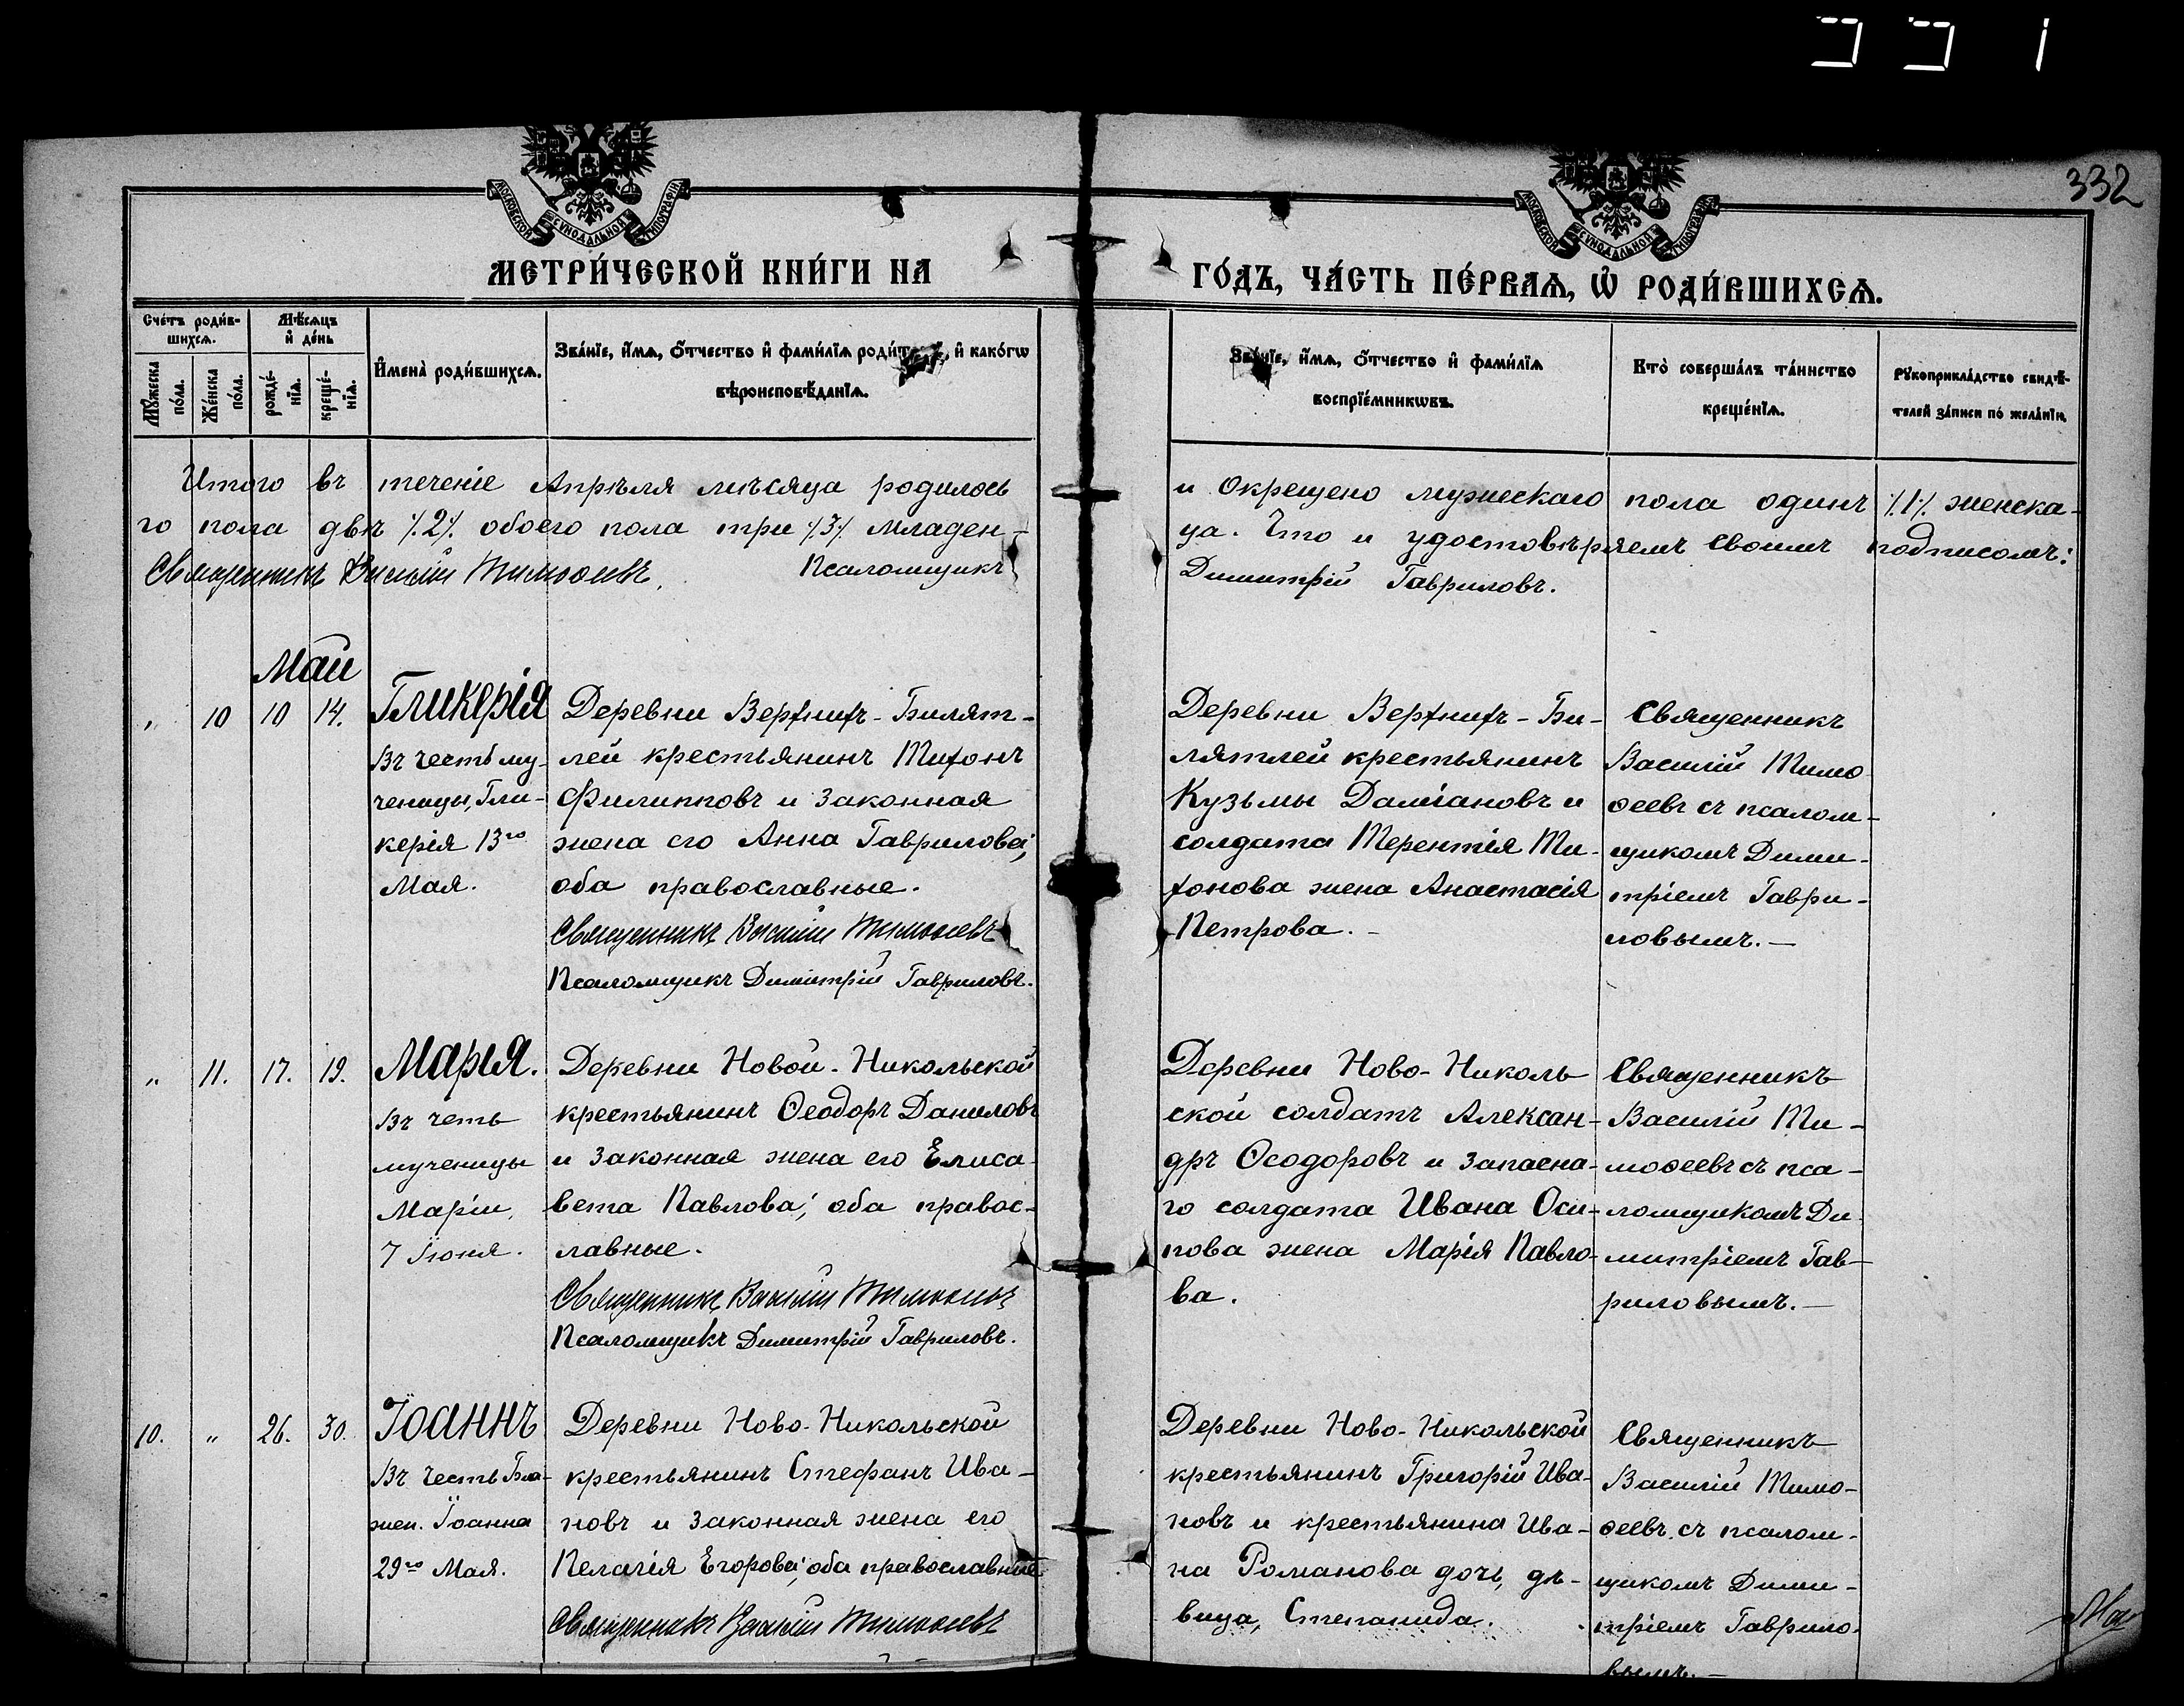 331
332
МОСКОВСКОЙ СѴНОДАЛЬНОЙ ТИПОГРАФІИ
МОСКОВСКОЙ СѴНОДАЛЬНОЙ ТИПОГРАФІИ
МЕТРИ́ЧЕСКОЙ КНИ́ГИ НА
ГО́ДЪ, ЧА́СТЬ ПЕ́РВАѦ, Ѡ҆ РОДИ́ВШИХСѦ.
Сче́тъ роди́в-
шихсѧ.
Мѣ́сѧцъ
и҆ де́нь
Мꙋ́жеска
по́ла.
Же́нска
по́ла.
рожде́-
нїѧ.
креще́-
нїѧ.
И҆мена̀ роди́вшихсѧ.
Зва́нїе, и҆́мѧ, ѻ҆́тчество и҆ фами́лїѧ роди́телей, и҆ како́гѡ
вѣроисповѣ́данїѧ.
Зва́нїе, и҆́мѧ, ѻ҆́тчество и҆ фами́лїѧ
воспрїе́мникѡвъ.
Кто̀ соверша́лъ та́инство
креще́нїѧ.
Рꙋкоприкла́дство свидѣ́-
телей за́писи по жела́нїю.
Итого въ теченіе Апрѣля мѣсяца родилось
и окрещено мужескаго пола одинъ /.1./. женска-
го пола двѣ /.2./. обоего пола три /.3./. младен-
ца. Что и удостовѣряемъ своимъ подписомъ:
Священникъ Василій Тимоѳеевъ. Псаломщикъ
Димитрій Гавриловъ.
Май
„ 10 10 14.
Гликерія
Въ честь му-
ченицы, Гли-
керія 13го
Мая.
Деревни Верхнихъ-Билят-
лей крестьянинъ Тихонъ
Филипповъ и законная
жена его Анна Гаврилова;
оба православные.
Священникъ Василій Тимоѳеевъ
Псаломщикъ Димитрій Гавриловъ.
Деревни Верхнихъ-Би-
лятлей крестьянинъ
Кузьмы Даміановъ и
солдата Терентія Ти-
хонова жена Анастасія
Петрова. -
Священникъ
Василій Тимо
ѳеевъ съ псалом-
щикомъ Дими-
тріемъ Гаври-
ловымъ. —
„ 11. 17. 19.
Марія.
Въ четь
мученицы
Маріи,
7 Іюня.
Деревни Новой-Никольской
крестьянинъ Ѳеодоръ Даниловъ
и законная жена его Елиса-
вета Павлова; оба правос-
лавные.
Священникъ Василій Тимоѳеевъ
Псаломщикъ Димитрій Гавриловъ.
Деревни Ново-Николь
ской солдатъ Алексан-
дръ Ѳеодоровъ и запасна-
го солдата Ивана Оси-
пова жена Марія Павло-
ва.
Священникъ
Василій Ти-
моѳеевъ съ пса-
ломщикомъ Ди-
митріемъ Гав-
риловымъ. —
10. „ 26. 30.
Іоаннъ
Въ честь Бла-
жен. Іоанна
29го Мая.
Деревни Ново-Никольской
крестьянинъ Стефанъ Ива-
новъ и законная жена его
Пелагія Егорова; оба православные
Священникъ Василій Тимоѳеевъ
Деревни Ново-Никольской
крестьянинъ Григорій Ива-
новъ и крестьянина Ива-
на Романова дочь, дѣ-
вица, Степанида.
Священникъ
Василій Тимо-
ѳеевъ съ псалом-
щикомъ Дими-
тріемъ Гаврило-
вымъ. —